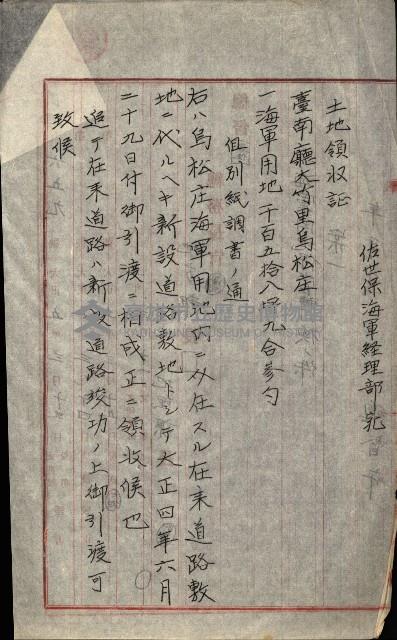 佐世保海軍経理部宛
土地領収証
臺南廳大竹里鳥松庄
一海軍用地千百五拾八坪九合参勺
但別紙調書ノ通
右ハ鳥松庄海軍用地内ニ介在スル在来道路敷
地ニ代ルヘキ新設道路敷地トシテ大正四年六月
二十九日付御引渡ニ相成正ニ領收候也
追テ在来道路ハ新設道路竣功ノ上御引渡可
致候
歴史博物館
MUSEUM